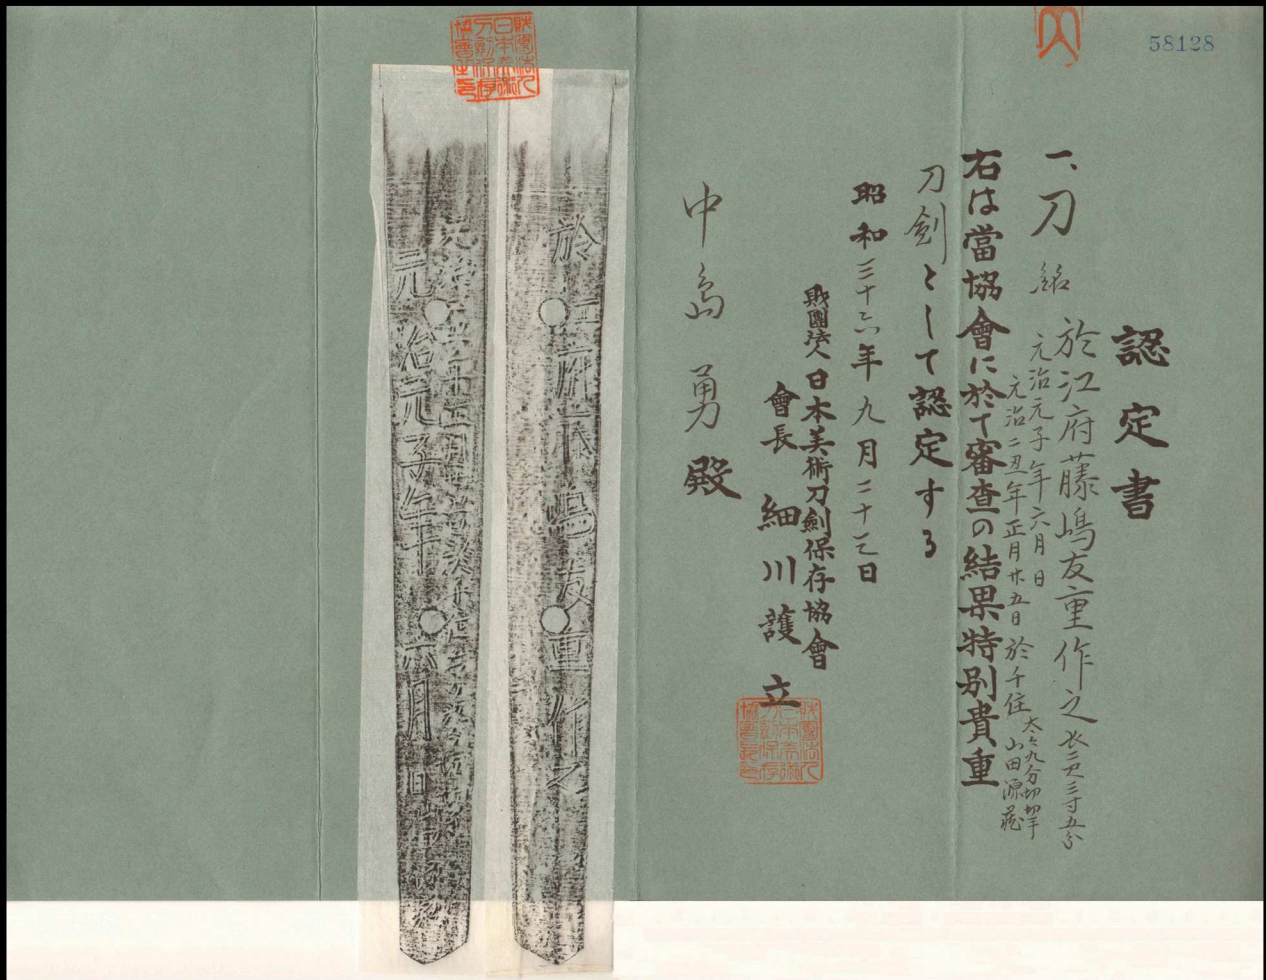 58128
認定書
一、刀 銘 於江府藤嶋友重作之 長二尺三寸五分
元治元子年六月日
元治二丑年正月廿五日 於千住 太々九分切切手
山田源蔵
右は當協會に於て審査の結果特別貴重
刀剣として認定する
昭和三十六年九月二十三日
財團法人日本美術刀劍保存協會
會長 細川護立
中島勇殿
於江府藤嶋友重作之
元治元子年六月日